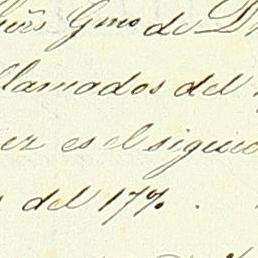 Gmo de
llamados del
er es el siguie
del 17%.